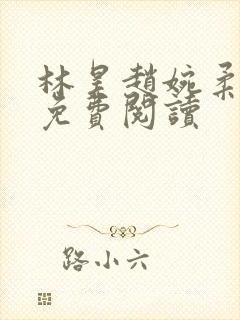 林昊趙婉柔
免費閱讀
路小六